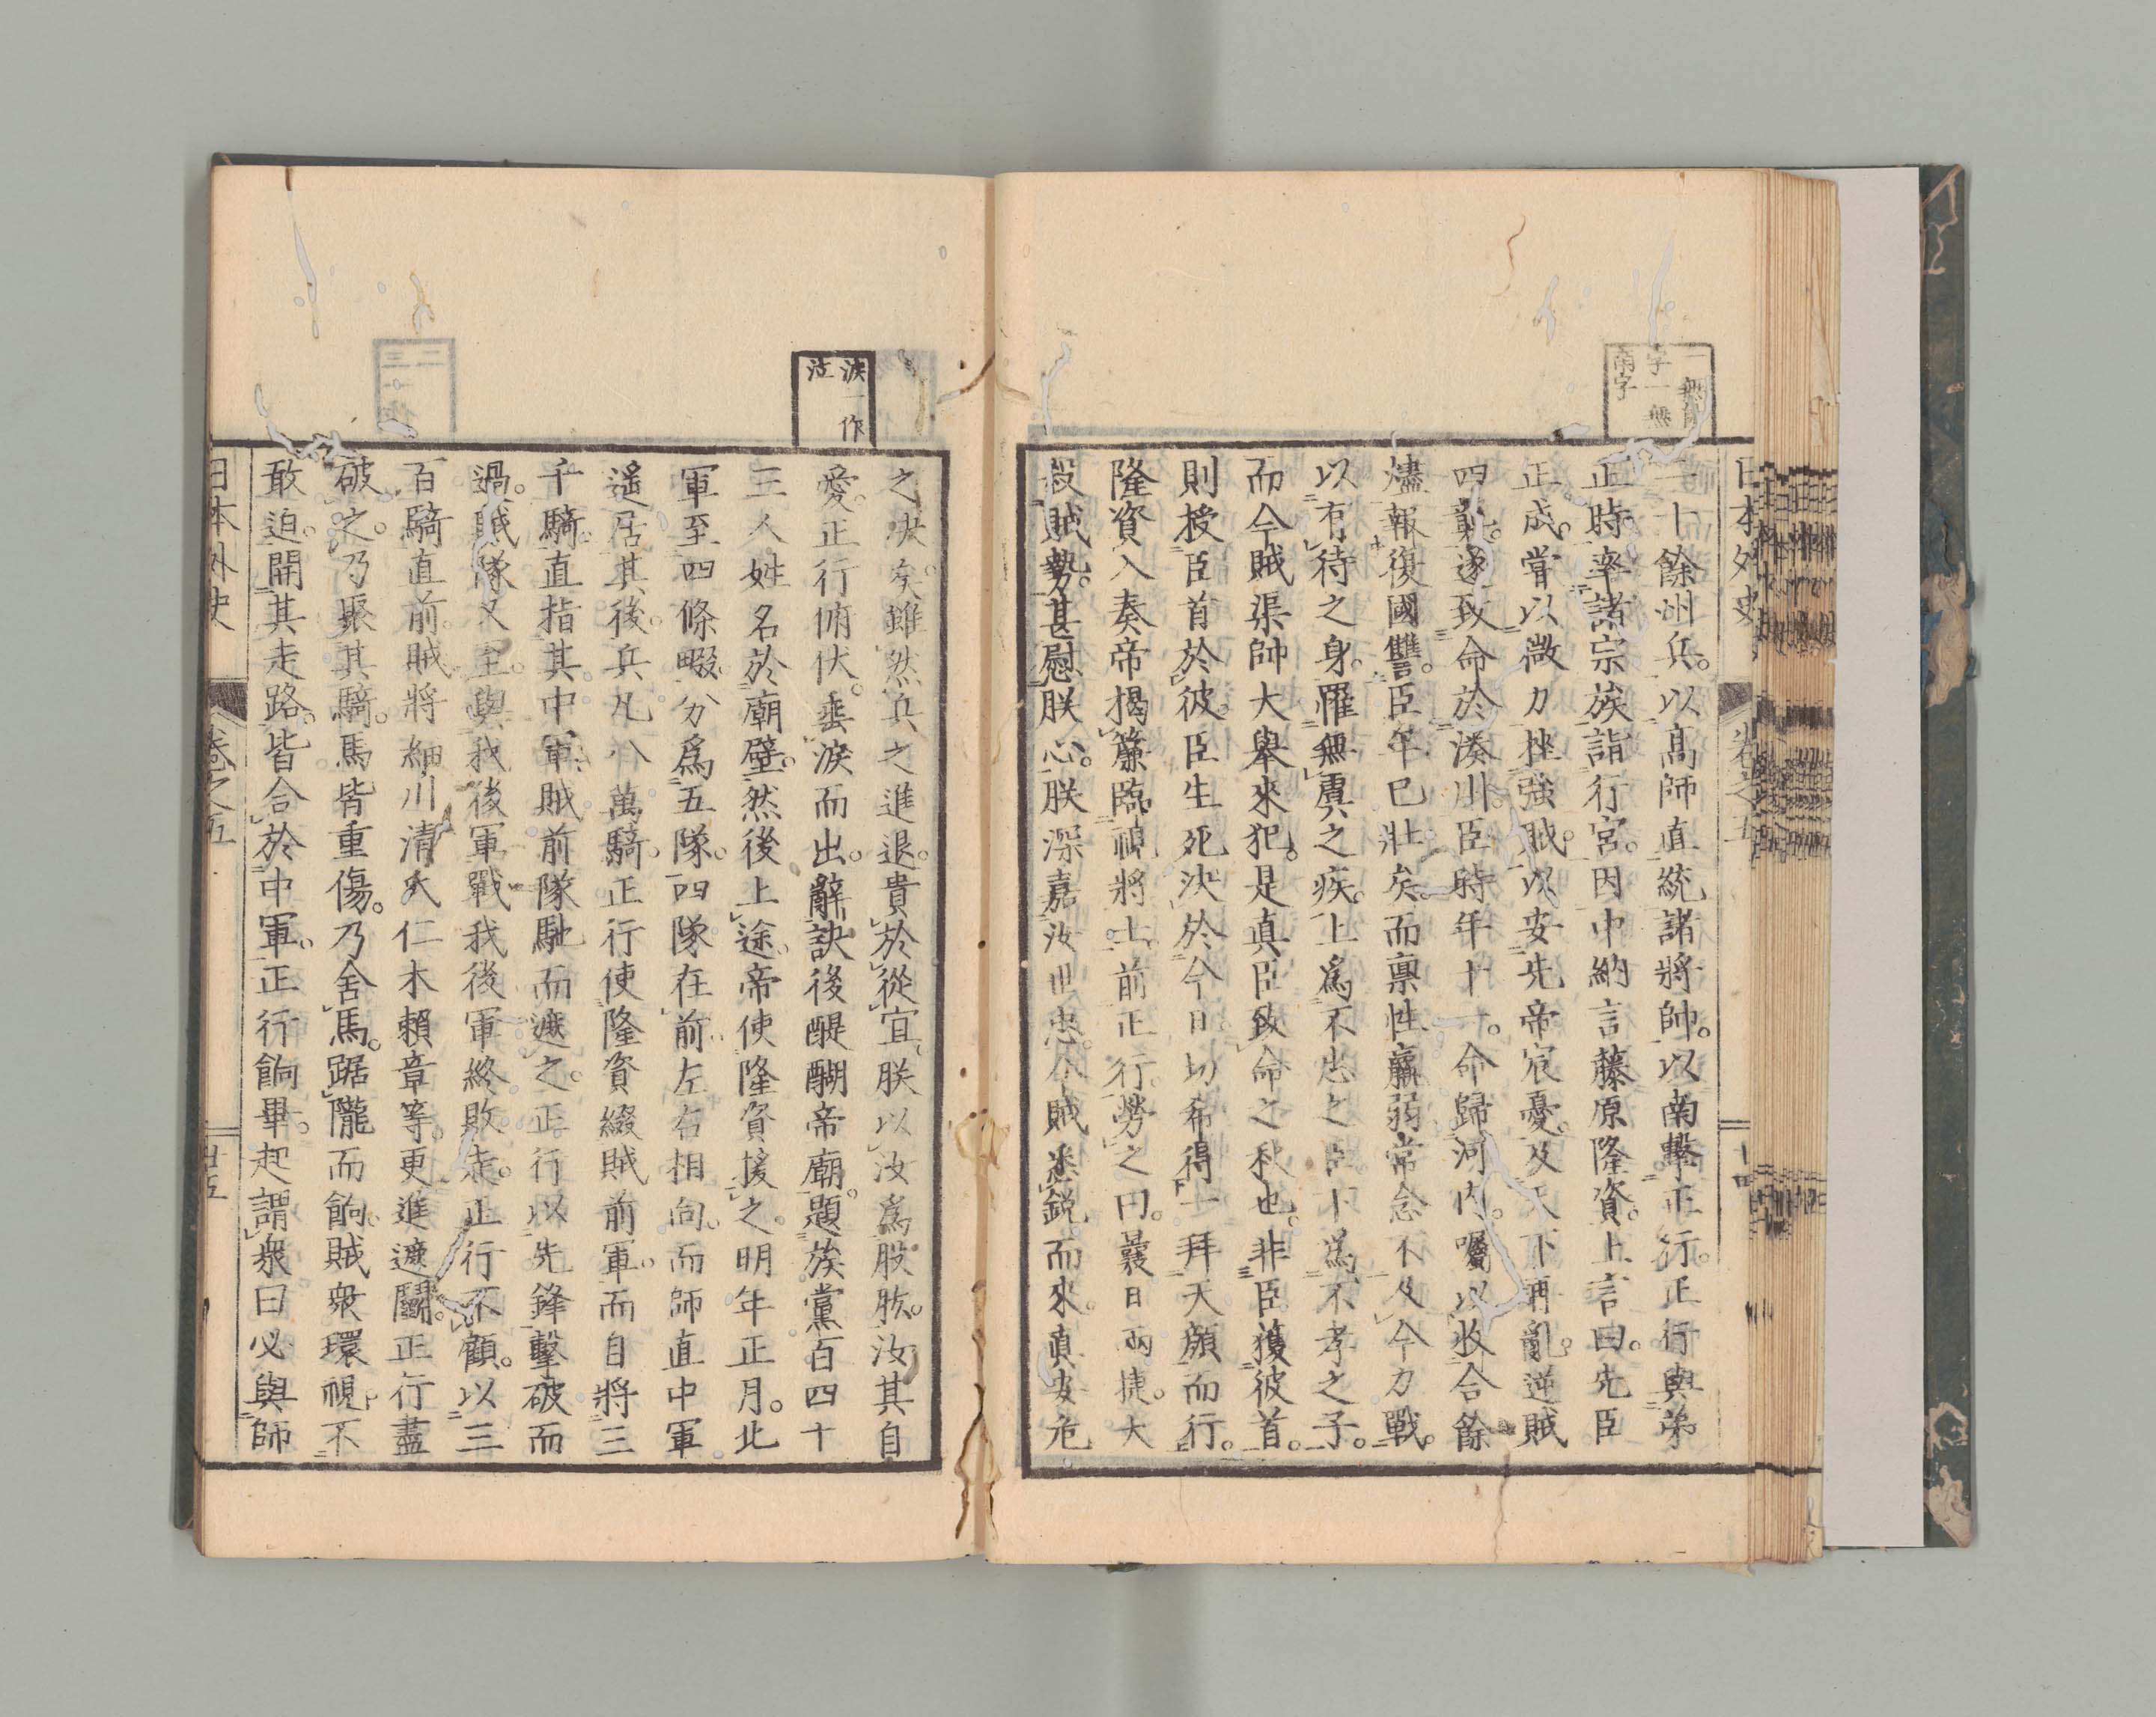 一無自
字一無
兩字
日本外史
卷之五
二十餘州兵。以高師直統諸將帥。以南擊正行。正行與弟
正時率諸宗族詣行宮。因中納言藤原隆資。上言曰。先臣
正成。嘗以微力挫強賊。以安先帝宸憂。及天下再亂。逆賊
四前。遂致命於湊川。臣時年十一。命歸河內。囑以收合餘
燼報復國讐。臣年已壯矣。而稟性羸弱常念不及今力戰。
以有待之身。罹無虞之疾。上爲不忠之臣。下爲不孝之子。
而今賊渠帥大舉來犯。是真臣致命之秋也。非臣獲彼首。
則授臣首於彼。臣生死決於今日。切希得一拜天顏而行。
隆資入奏帝揭簾臨視將士。前正行。勞之曰。曩日兩捷。大
殺賊勢。甚慰朕心。朕深嘉汝世忠。今賊悉銳而來。真安危
淚一作
泣
之決矣。雖然兵之進退。貴於從宜。朕以汝爲股肱。汝其自
愛。正行俯伏。垂淚而出。辭訣後醍醐帝廟。題族黨百四十
三人姓名於廟壁。然後上途。帝使隆資援之。明年正月。北
軍至四條畷。分爲五隊。四隊在前。左右相向。而師直中軍。
遙居其後。兵凡八萬騎。正行使隆資綴賊前軍。而自將三
千騎。直指其中軍。賊前隊馳而遮之。正行以先鋒擊破而
過。賊隊又至。與我後軍戰我後軍終敗走。正行不顧。以三
百騎直前。賊將細川清氏仁木賴章等。更進遮鬭。正行盡
破之。乃聚其騎。馬皆重傷。乃舍馬。踞隴而餉。賊衆環視。不
敢迫。開其走路。皆合於中軍。正行餉畢。起謂衆曰必與師
日本外史
卷之五
廿五